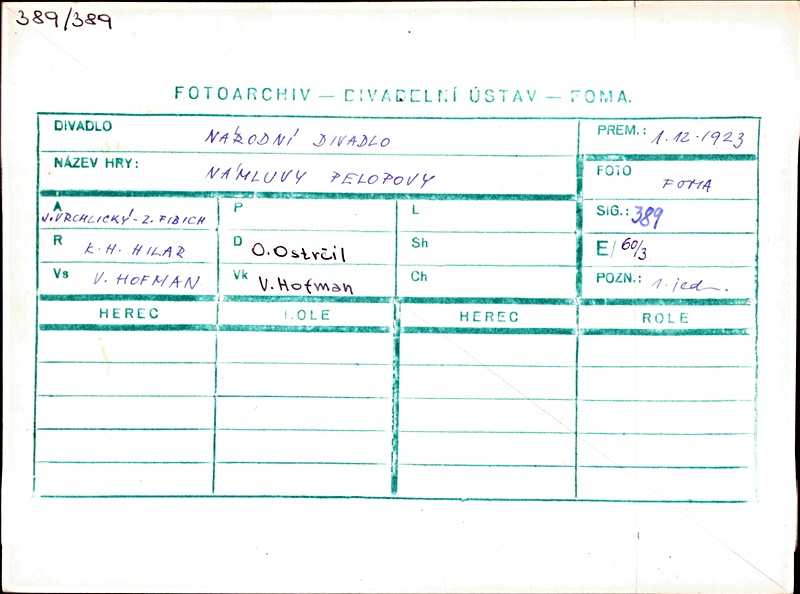 389/389
FOTOARCHIV — DIVADELNÍ ÚSTAV — FOMA.
DIVADLO NÁRODNÍ DIVADLO PREM.: 1.12.1923
NÁZEV HRY: NÁMLUVY PELOPOVY FOTO FOMA
A J.VRCHLICKÝ-Z.FIBICH P L SIG.: 389
R K.H. HILAR D O.Ostrčil Sh E/60/3
Vs V. HOFMAN Vk V.Hofman Ch POZN.: 1.jed.
HEREC ROLE HEREC ROLE